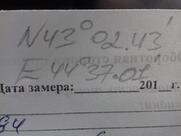 N43° 02.43'
E 44° 37.07'
Дата замера: 201 г.
94